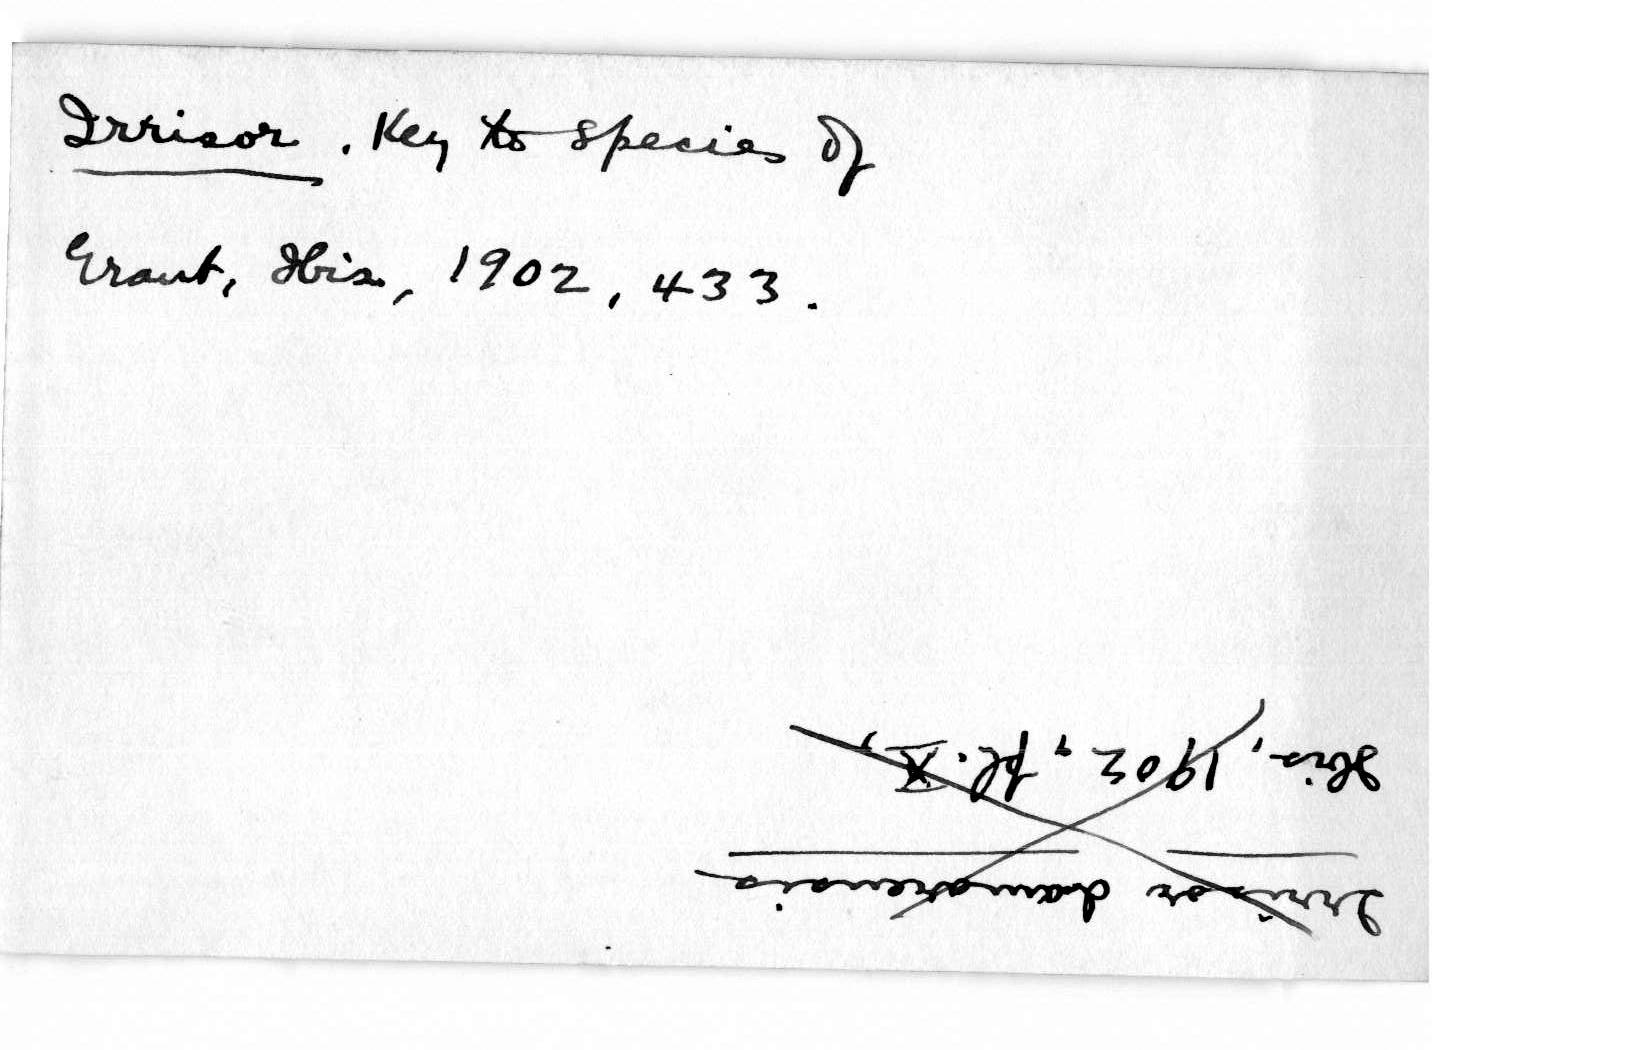 Irrisor. Key to species of
Grant, Ibis, 1902, 433.
Irrisor damarensis
Ibis, 1902, pl. X,